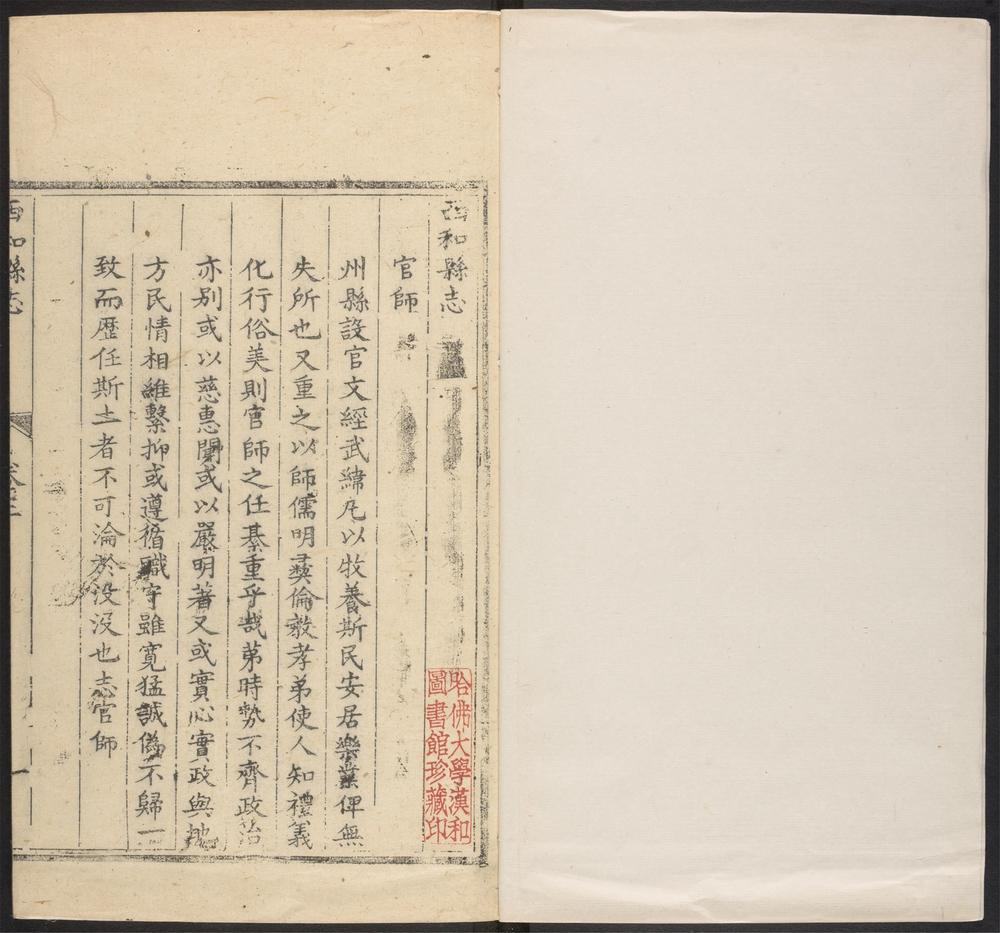 西和縣志
官師
州縣設官文經武緯凡以牧養斯民安居樂業俾無
失所也又重之以師儒明彛倫敦孝弟使人知禮義
化行俗美則官師之任綦重乎哉苐時勢不齊政治
亦别或以慈惠聞或以嚴明著又或實心實政與地
方民情相維繫抑或遵循職守雖寬猛誠偽不歸一
致而歷任斯土者不可淪於没没也志官師
西和縣志
卷三
一
哈佛大學漢和
圖書館珍藏印